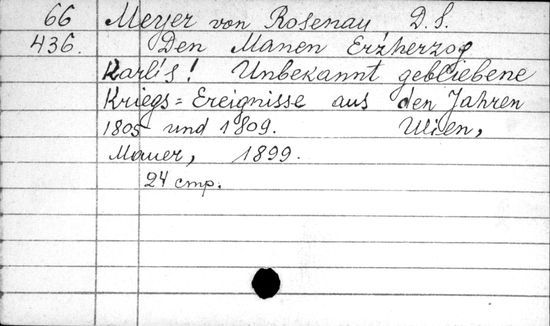 66 Meyer von Rosenau D. S.
436. Den Manen Erzherzog
Karl's! Unbekannt gebliebene
Kriegs=Ereignisse aus den Jahren
1805 und 1809. Wien,
Mauer, 1899.
24 стр.